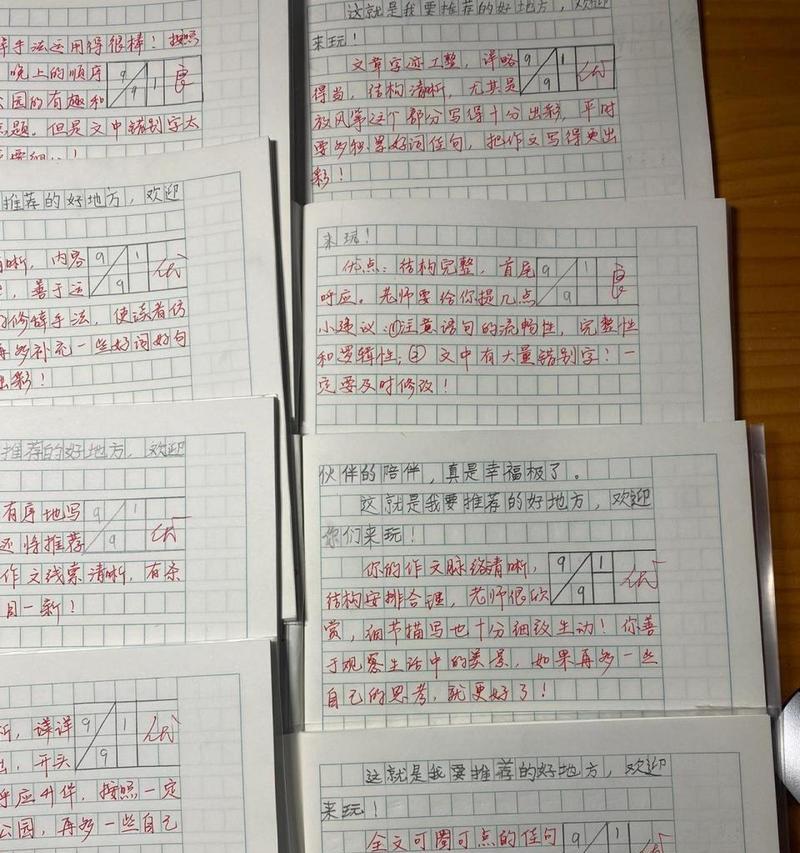 手法运用得很棒！按照
晚上的顺序
9 1 良
9
公园的有趣和
题。但是文中错别字太
推荐的好地方，欢迎
晰，内容
9 1 优
9
，善于运
修辞手法，使读者仿
再多补充一些好词好句
出彩！
推荐的好地方，欢迎
有序地写
9 1 优
9
还将推荐
作文线索清晰，有条
目一新！
，详详
9 1 优
9
出，开头
呼应升华，按照一定
公园，再多一些自己
这就是我要推荐的好地方，欢迎
来玩！
文章字迹工整，详略
9 1 优
9
得当，结构清晰，尤其是
放风筝这个部分写得十分出彩，平时
要多积累好词佳句，把作文写得更出
彩！
来玩！
优点：结构完整，首尾
9 1 良
9
呼应。老师要给你提几点
小建议：①注意语句的流畅性，完整性
和逻辑性；②文中有大量错别字！一
定要及时修改！
伙伴的陪伴，真是幸福极了。
这就是我要推荐的好地方，欢迎
你们来玩！
你的作文脉络清晰，
9 1 优
9
结构安排合理，老师很欣
赏，细节描写也十分细致生动！你善
于观察生活中的美景，如果再多一些
自己的思考，就更好了！
这就是我要推荐的好地方，欢迎
来玩！
全文可圈可点的佳句
9 1
9